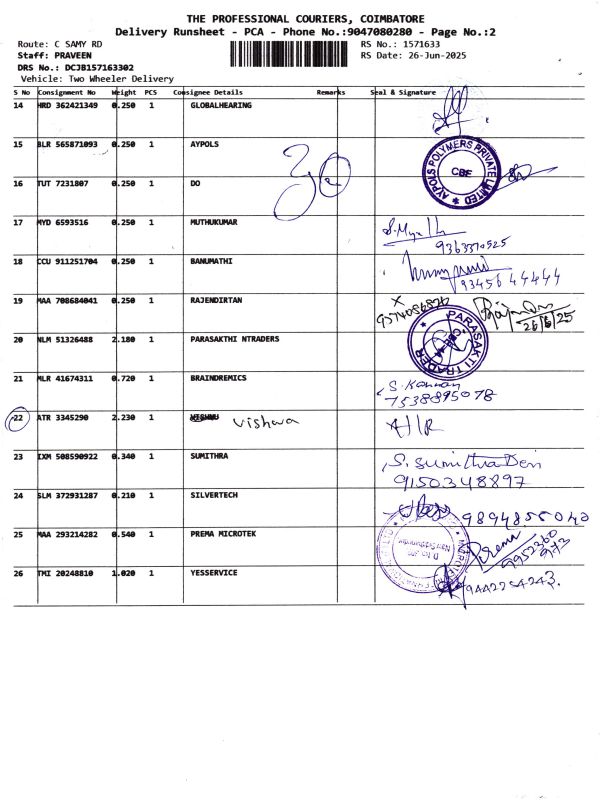 THE PROFESSIONAL COURIERS, COIMBATORE
Delivery Runsheet - PCA - Phone No.:9047080280 - Page No.:2
Route: C SAMY RD RS No.: 1571633
Staff: PRAVEEN RS Date: 26-Jun-2025
DRS No.: DCJB157163302
Vehicle: Two Wheeler Delivery
S No Consignment No Weight PCS Consignee Details Remarks Seal & Signature
14 HRD 362421349 0.250 1 GLOBALHEARING
15 BLR 565871093 0.250 1 AYPOLS
AYPOLS POLYMERS PRIVATE LIMITED
CBE
16 TUT 7231807 0.250 1 DO
17 MYD 6593516 0.250 1 MUTHUKUMAR
9363370525
18 CCU 911251704 0.250 1 BANUMATHI
9345644444
19 MAA 708684041 0.250 1 RAJENDIRTAN
26/6/25
20 NLM 51326488 2.180 1 PARASAKTHI NTRADERS
PARASAKTI TRADER
21 MLR 41674311 0.720 1 BRAINDREMICS S. Kannan
7538895078
22 ATR 3345290 2.230 1 Vishwa
23 IXM 508590922 0.340 1 SUMITHRA S. Sumithra Devi
9150348897
24 SLM 372931287 0.210 1 SILVERTECH 9894855040
25 MAA 293214282 0.540 1 PREMA MICROTEK Prema
9952360
973
26 TMI 20248810 1.020 1 YESSERVICE
9442264243.